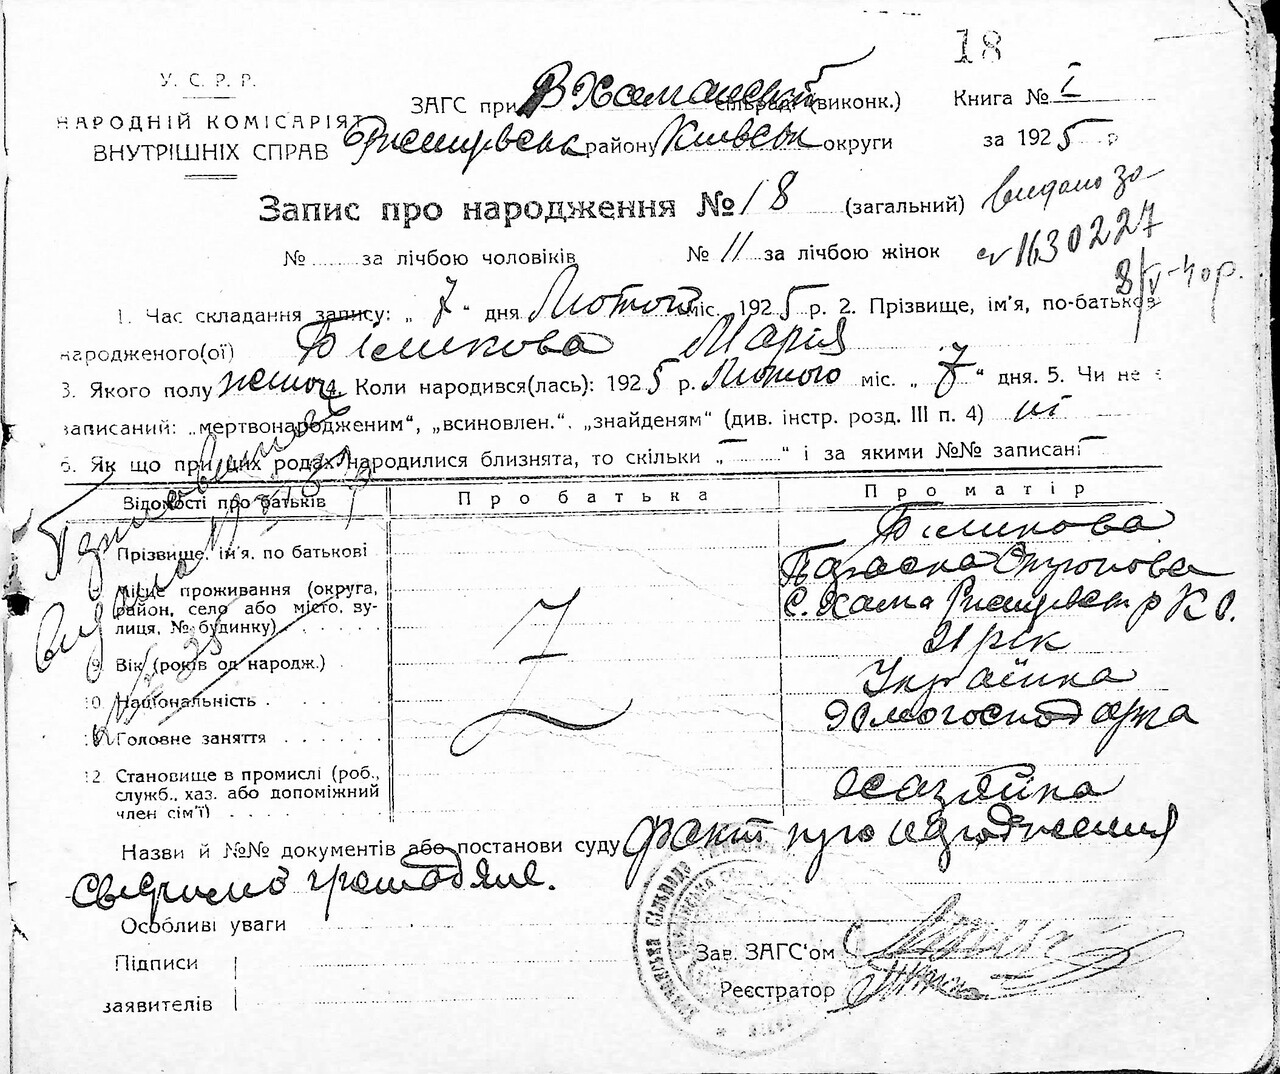 18
У. С. Р. Р.
НАРОДНІЙ КОМІСАРІЯТ
ВНУТРІШНІХ СПРАВ
ЗАГС при сільраді (виконк.)
району Київськ округи
Книга № I
за 1925 р
Запис про народження № 18 (загальний)
видано за
№ за лічбою чоловіків № 11 за лічбою жінок
1630227
8/V-40р.
1. Час складання запису: „ 7 “ дня Лютого міс. 1925 р. 2. Прізвище, ім'я, по-батькові
народженого(ої) Біликова Марія
3. Якого полу жіноч. 4. Коли народився(лась): 1925 р. Лютого міс. „ 7 “ дня. 5. Чи не є
записаний: „мертвонародженим“, „всиновлен.“, „знайденям“ (див. інстр. розд. III п. 4) ні
6. Як що при цих родах народилися близнята, то скільки „ — “ і за якими №№ записані —
Відомості про батьків
Про батька
Про матір
Прізвище, ім'я, по батькові
Біликова
Місце проживання (округа,
район, село або місто, ву-
лиця, № будинку)
9. Вік (років од народж.)
21 рік
10. Національність
Українка
11. Головне заняття
Домогосподарка
12. Становище в промислі (роб.,
служб., хаз. або допоміжний
член сім'ї)
Хазяйка
Назви й №№ документів або постанови суду Факт про народження
свідчимо громадяне.
Особливі уваги
Підписи
заявителів
Зав. ЗАГС'ом
Реєстратор